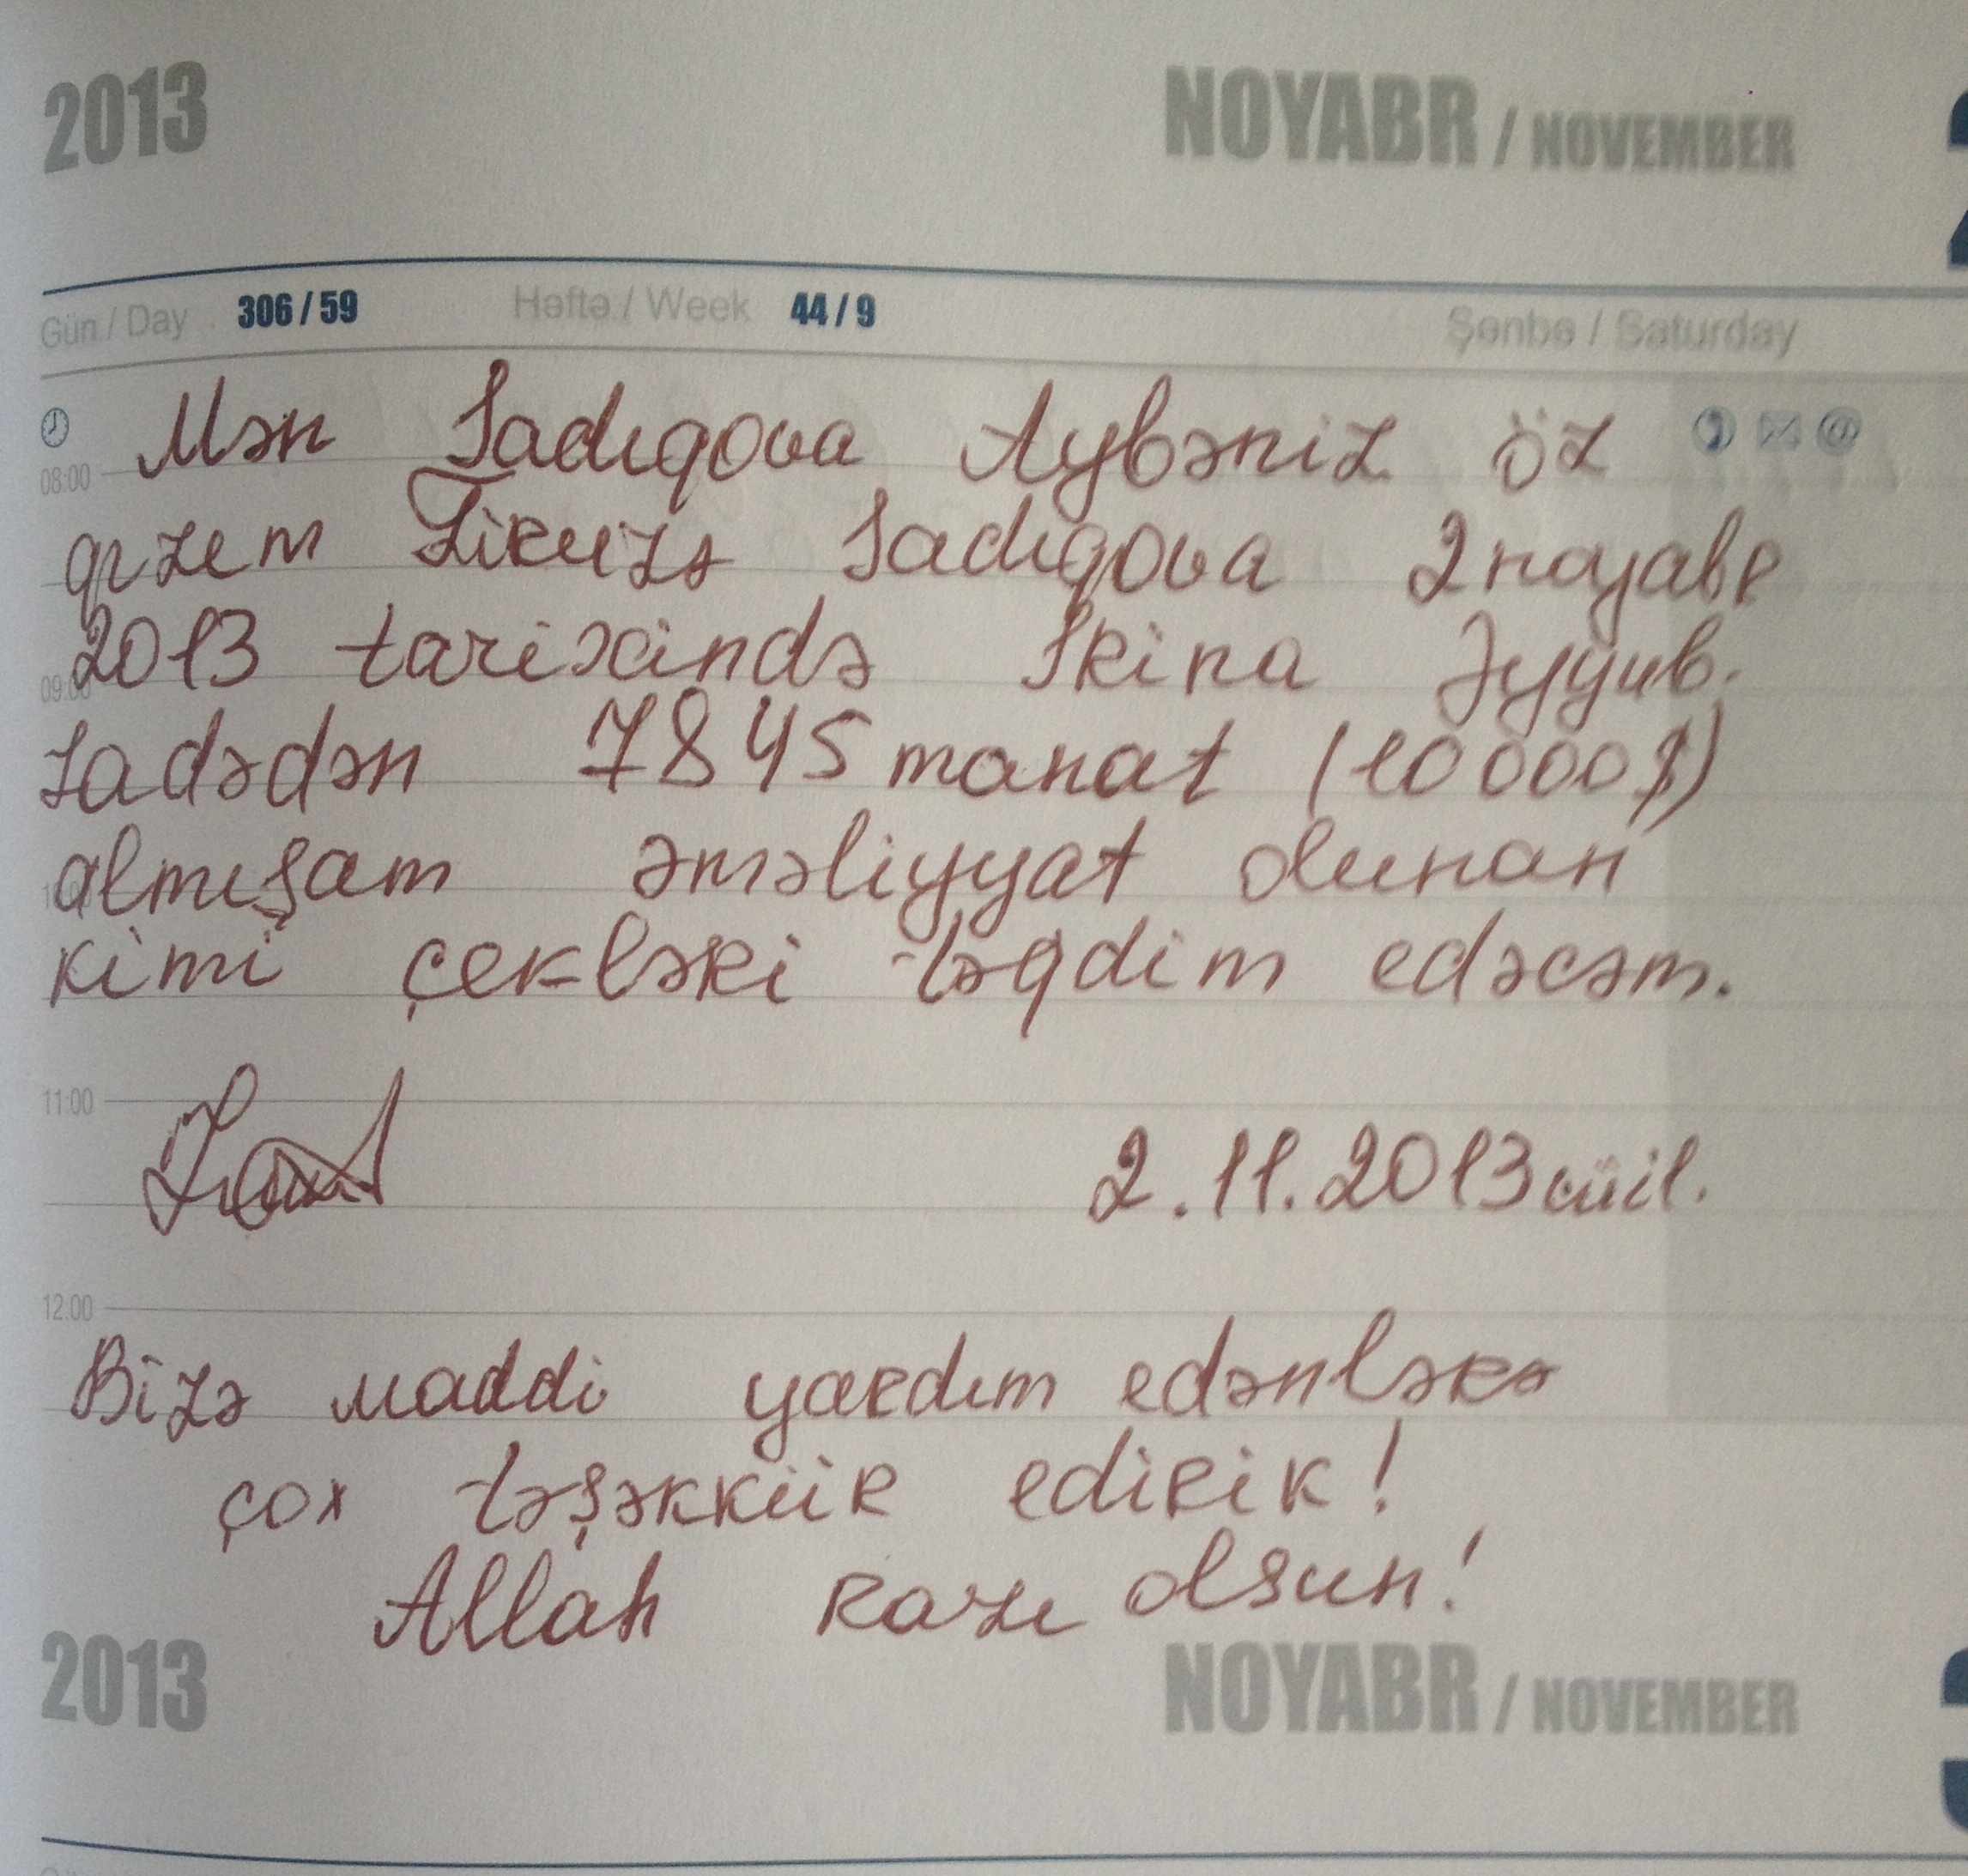 2013 NOYABR / NOVEMBER
Gün / Day 306 / 59 Həftə / Week 44 / 9 Şənbə / Saturday
Mən Sadıqova Aybəniz öz
08:00
qızım Firuzə Sadıqova 2 noyabr
2013 tarixində Skina Əyyub.
09:00
zadədən 7845 manat (10 000 $)
almışam əməliyyat olunan
kimi çekləri təqdim edəcəm.
11:00
2.11.2013 cüil.
12:00
Bizə maddi yardım edənlərə
çox təşəkkür edirik!
Allah razı olsun!
2013 NOYABR / NOVEMBER
3